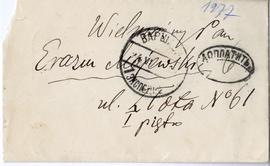 1977
Wielmożny Pan
Erazm Majewski
ВАРШ
ДОПЛАТИТЬ
ul. Złota № 61
I piętro